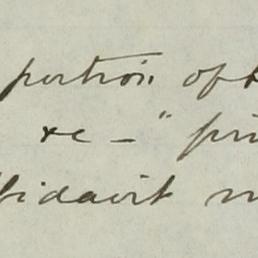 portion of
&c – " pri
ffidavit m